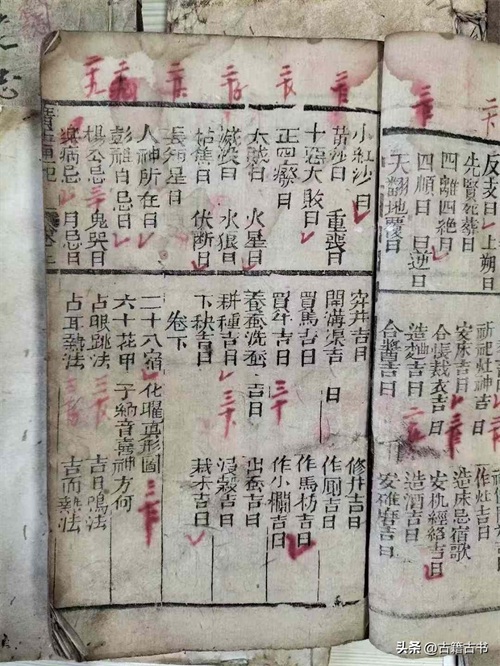 反支日 上朔日
先賢死葬日
四離四絕日
四順日 四逆日
天翻地覆日
安床吉日 造床忌宿歌
合帳裁衣吉日 安机經絡吉日
造麯吉日 造酒吉日
合醬吉日 安碓磨吉日
小紅沙日
黃沙日 重喪日
十惡大敗日
正四廢日
天賊日 火星日
滅沒日 水狼日
伏斷日
長短星日
人神所在日
彭祖百忌日
楊公忌 鬼哭日
病忌 月忌日
穿井吉日 修井吉日
開溝渠吉日 作厠吉日
買馬吉日 作馬枋吉日
買牛吉日 作小欄吉日
養蚕洗蚕吉日 出蚕吉日
耕種吉日 浸穀吉日
下秧吉日 栽禾吉日
卷下
二十八宿化曜真形圖
六十花甲子納音喜神方何
占眼跳法 吉日鳴法
占耳熱法 吉而熱法
头条 @古籍古书